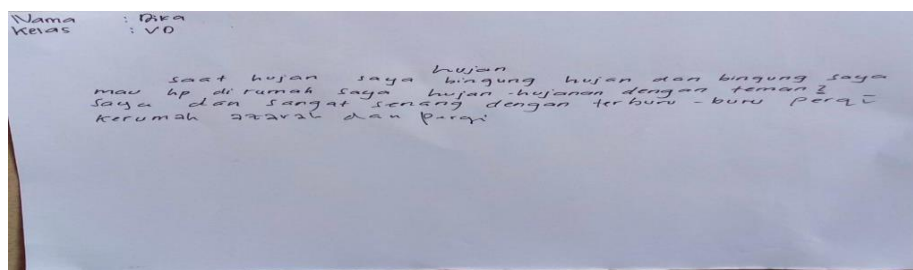 Nama : Dika
Kelas : VD
hujan
saat hujan saya bingung hujan dan bingung saya
mau hp di rumah saya hujan-hujanan dengan teman2
saya dan sangat senang dengan terburu-buru pergi
kerumah azarah dan pergi